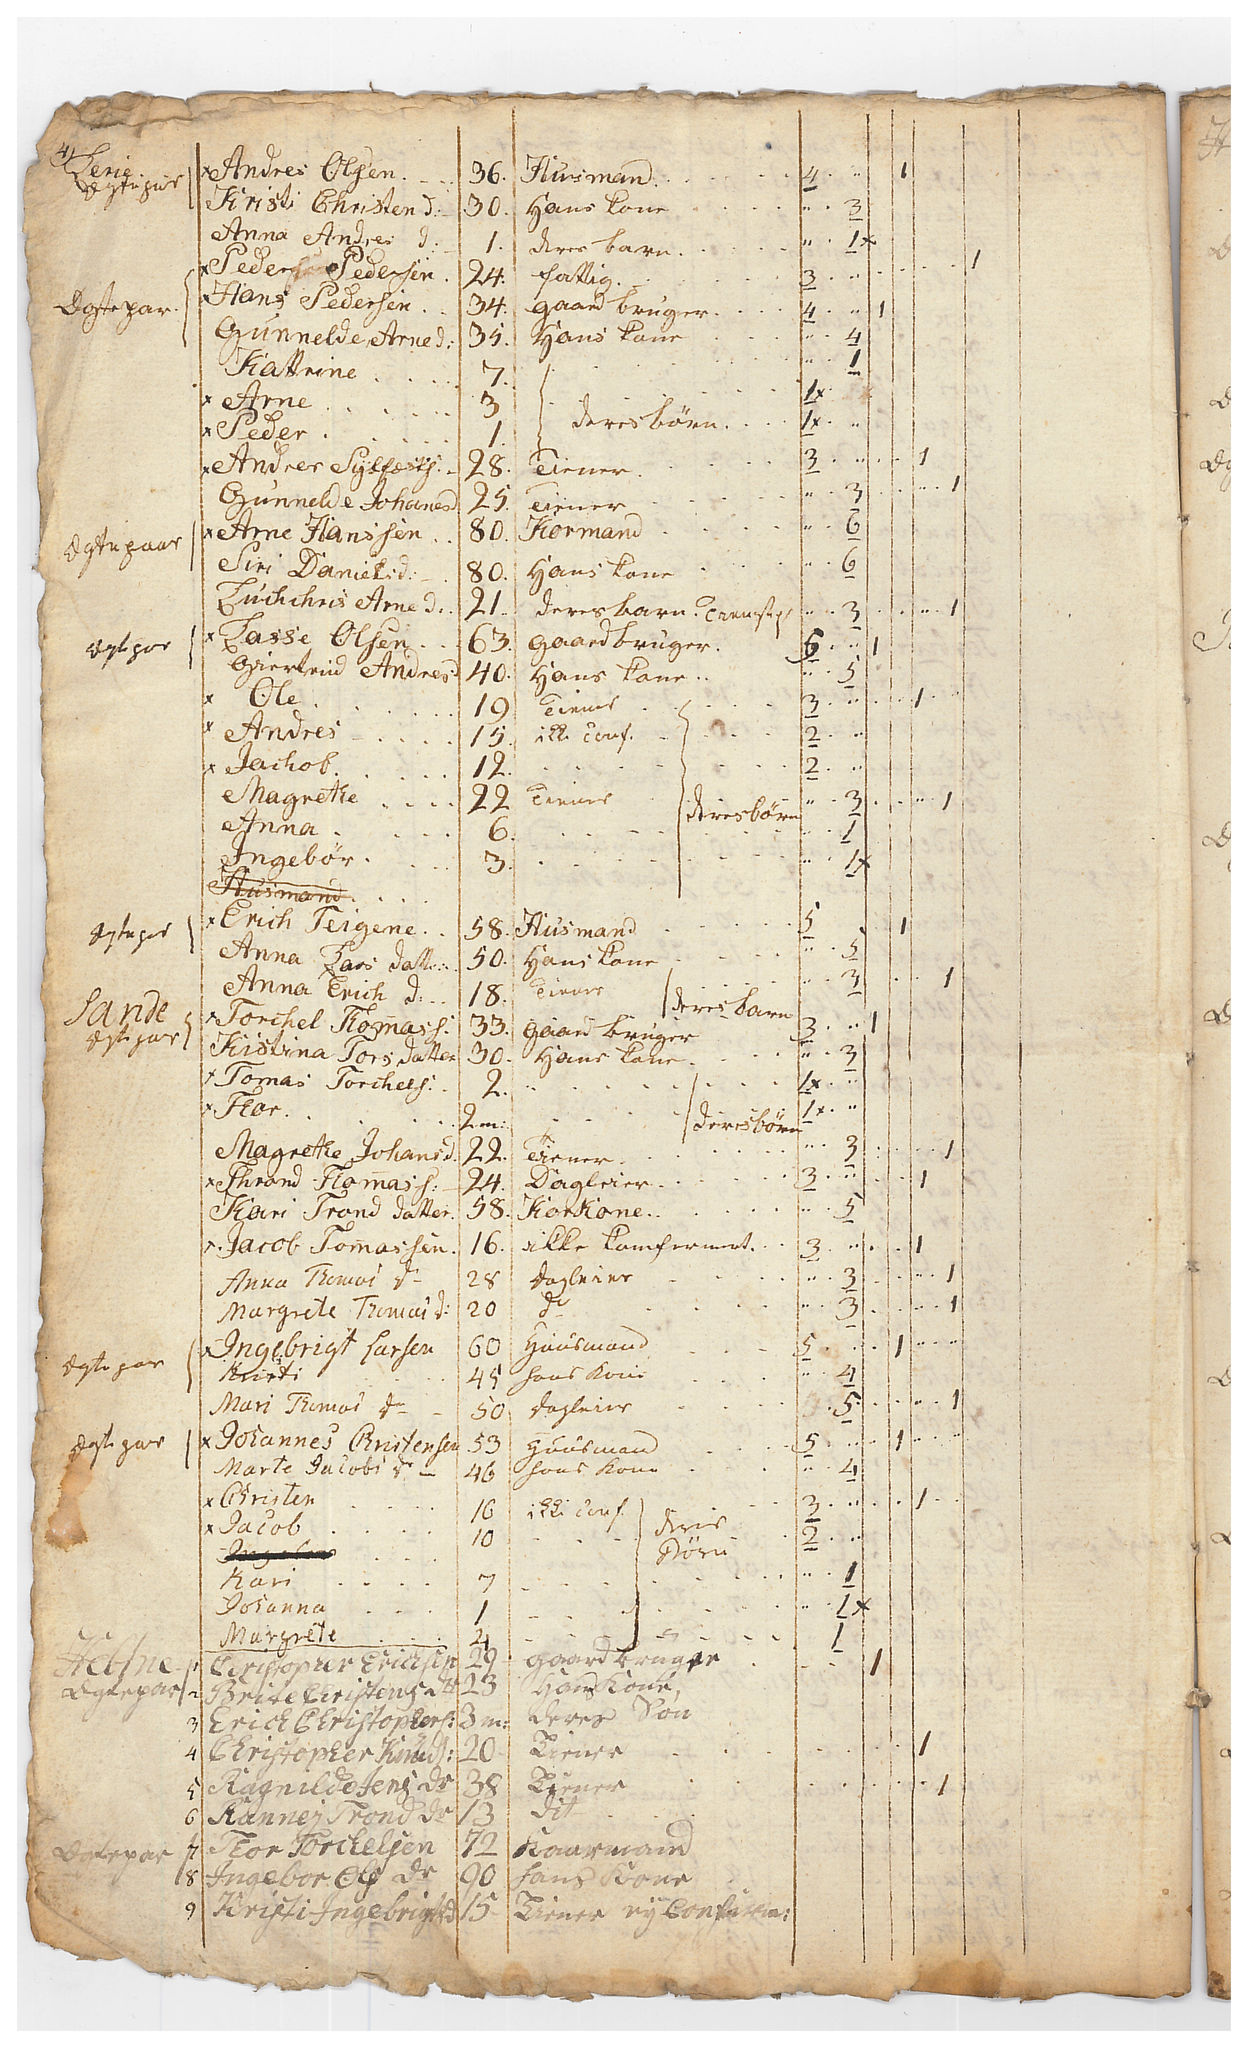 4)
Ægtepar x Andres Olsen. 36. Huusmand. 4. " 1
Kristi Christend: 30. Hans kone " 3
Anna Andres d: 1. deres barn. " 1x
x Peder Pedersen. 24. fattig. 3. " 1
Ægtepar. x Hans Pedersen. 34. gaard bruger. 4. " 1
Gunnelde Arned: 35. Hans kone " 4
Kattrine 7. " 1
x Arne 3 1x.
x Peder. 1. deres børn. 1x. "
x Andres 28. Tiener. 3. " 1
Gunnelde Johanesd 25. Tiener " 3 1
Ægtepaar x Arne Hanssen 80. Kormand " 6
Siri Danielsd: 80. Hans kone " 6
Arned. 21. deres barn. " 3 1
Ægtepar x Lasse Olsen 63. gaardbruger. 6. " 1
Andresd 40. Hans kone. " 5
x Ole. 19 Tiener 3. " 1
x Andres 15. ikke conf. 2. "
x Jachob. 12. 2. "
Magrethe 22 Tiener deres børn " 3 1
Anna. 6. " 1
Ingebør. 3. " 1x
Husmand.
Ægtepar x Erich Teigene. 58. Husmand 5 1
Anna Lars datter. 50. Hans kone " 5
Anna Erich d: 18. Tiener deres barn " 3 1
Sande
Ægtepar x Torchel Tomass: 33. gaard bruger 3. " 1
Kistina Tors datter 30. Hans kone. " 3
x Tomas Torchels: 2. 1x. "
x Thor. 2 m: deres børn 1x. "
Magrethe Johansd. 22. Tiener. " 3 1
x Thrond Tomass: 24. Dagleier. 3. " 1
Kari Trond datter. 58. KorKone. " 5
x Jacob Tomassen. 16. ikke komfermert. 3. " 1
Anna Thomas dr 28 dagleier " 3 1
Margrete Thomas d: 20 do " 3. 1
Ægtepar x Ingebrigt Larsen 60 Huusmand 5 1 "
Kristi 45 hans Kone " 4
Mari Thomas dr 50 dagleier 5 1
Ægtepar x Johannes Christensen 53 Huusmand 5 " 1 "
Marte Jacobs dr 46 hans Kone " 4
x Christen 16 ikke conf. 3. " 1
x Jacob 10 deres Børn 2 "
Kari 7 " 1
Johanna 1 " 1x
Margrete 4 1
1 Christopher Erichsen 29 gaardbruger 1
Ægtepar 2 Brite Christens dtr 23 Hans Kone,
3 Erich Christophers: 3 m: deres Søn
4 Christopher Knuds: 20 Tiener 1
5 Ragnilde Jens dr 38 Tiener 1
6 Rannej Trond dr 13 dit
Ægtepar 7 Thor Torchelsen 72 Kaarmand
8 Ingebor Ols dr 90 hans Kone
9 Kristi Ingebrigtsd 15 Tiener